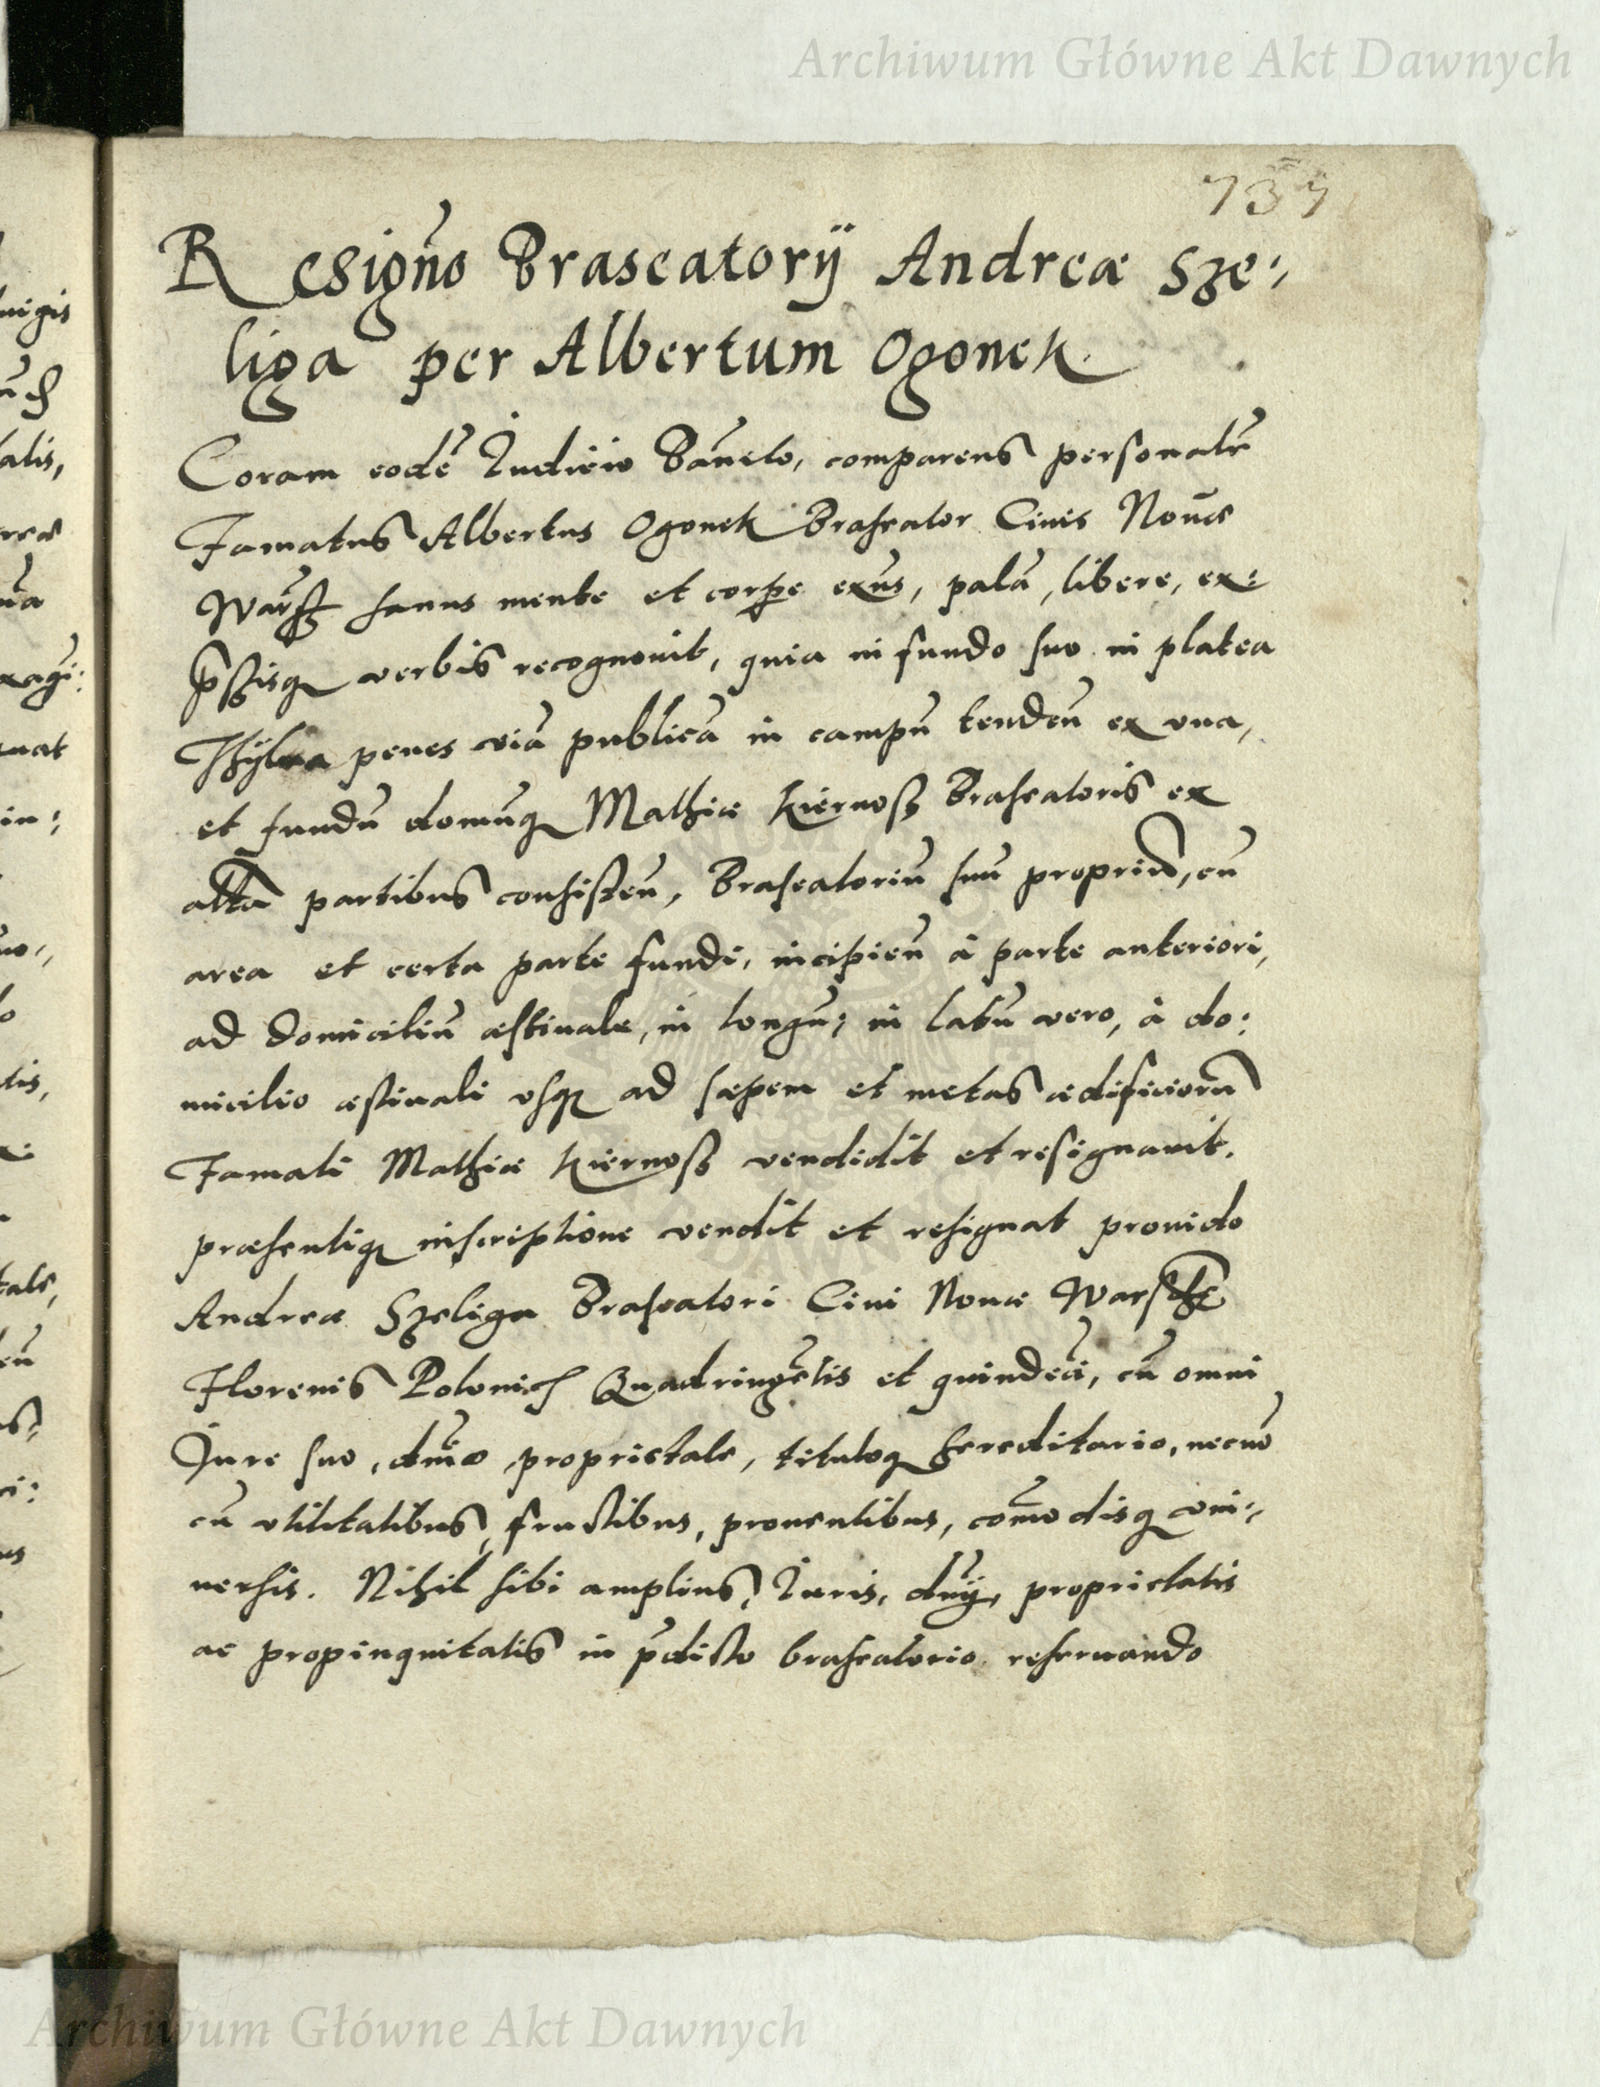 Archiwum Główne Akt Dawnych
737
Resigno Brascatorij Andreæ Sze:
liga per Albertum Ogonek.
Coram eodē Iudicio Bānito, comparens personalr
Famatus Albertus Ogonek Braseator Ciuis Nouæ
Warss sanus mente et corpe exns, palā, libere, ex:
pssisq verbis recognouit, quia in fundo suo in platea
penes viā publicā in campū tendeñ ex vna,
et fundū domūq Mathiæ Kiernoss Braseatoris ex
alta partibus consisteñ, Braseatoriū suū propriū, cū
area et certa parte fundi, incipieñ à parte anteriori,
ad domiciliū æstiuale, in longū; in latū vero, à do:
micilio æstiuali vsq ad sæpem et metas ædificiorū
Famati Mathiæ Kiernoss vendidit et resignauit.
præsentiq inscriptione vendit et resignat prouido
Andreæ Szeliga Braseatori Ciui Nouæ Warss
Florenis Polonich Quadringētis et quindecī, cū omni
Iure suo, dnio proprietate, tituloq hereditario, necnō
cū vtilitatibus, fructibus, prouentibus, comodisq vni:
uersis. Nihil sibi amplius Iuris, dnij, proprietatis
ac propinquitatis in pdicto braseatorio reseruando
Archiwum Główne Akt Dawnych